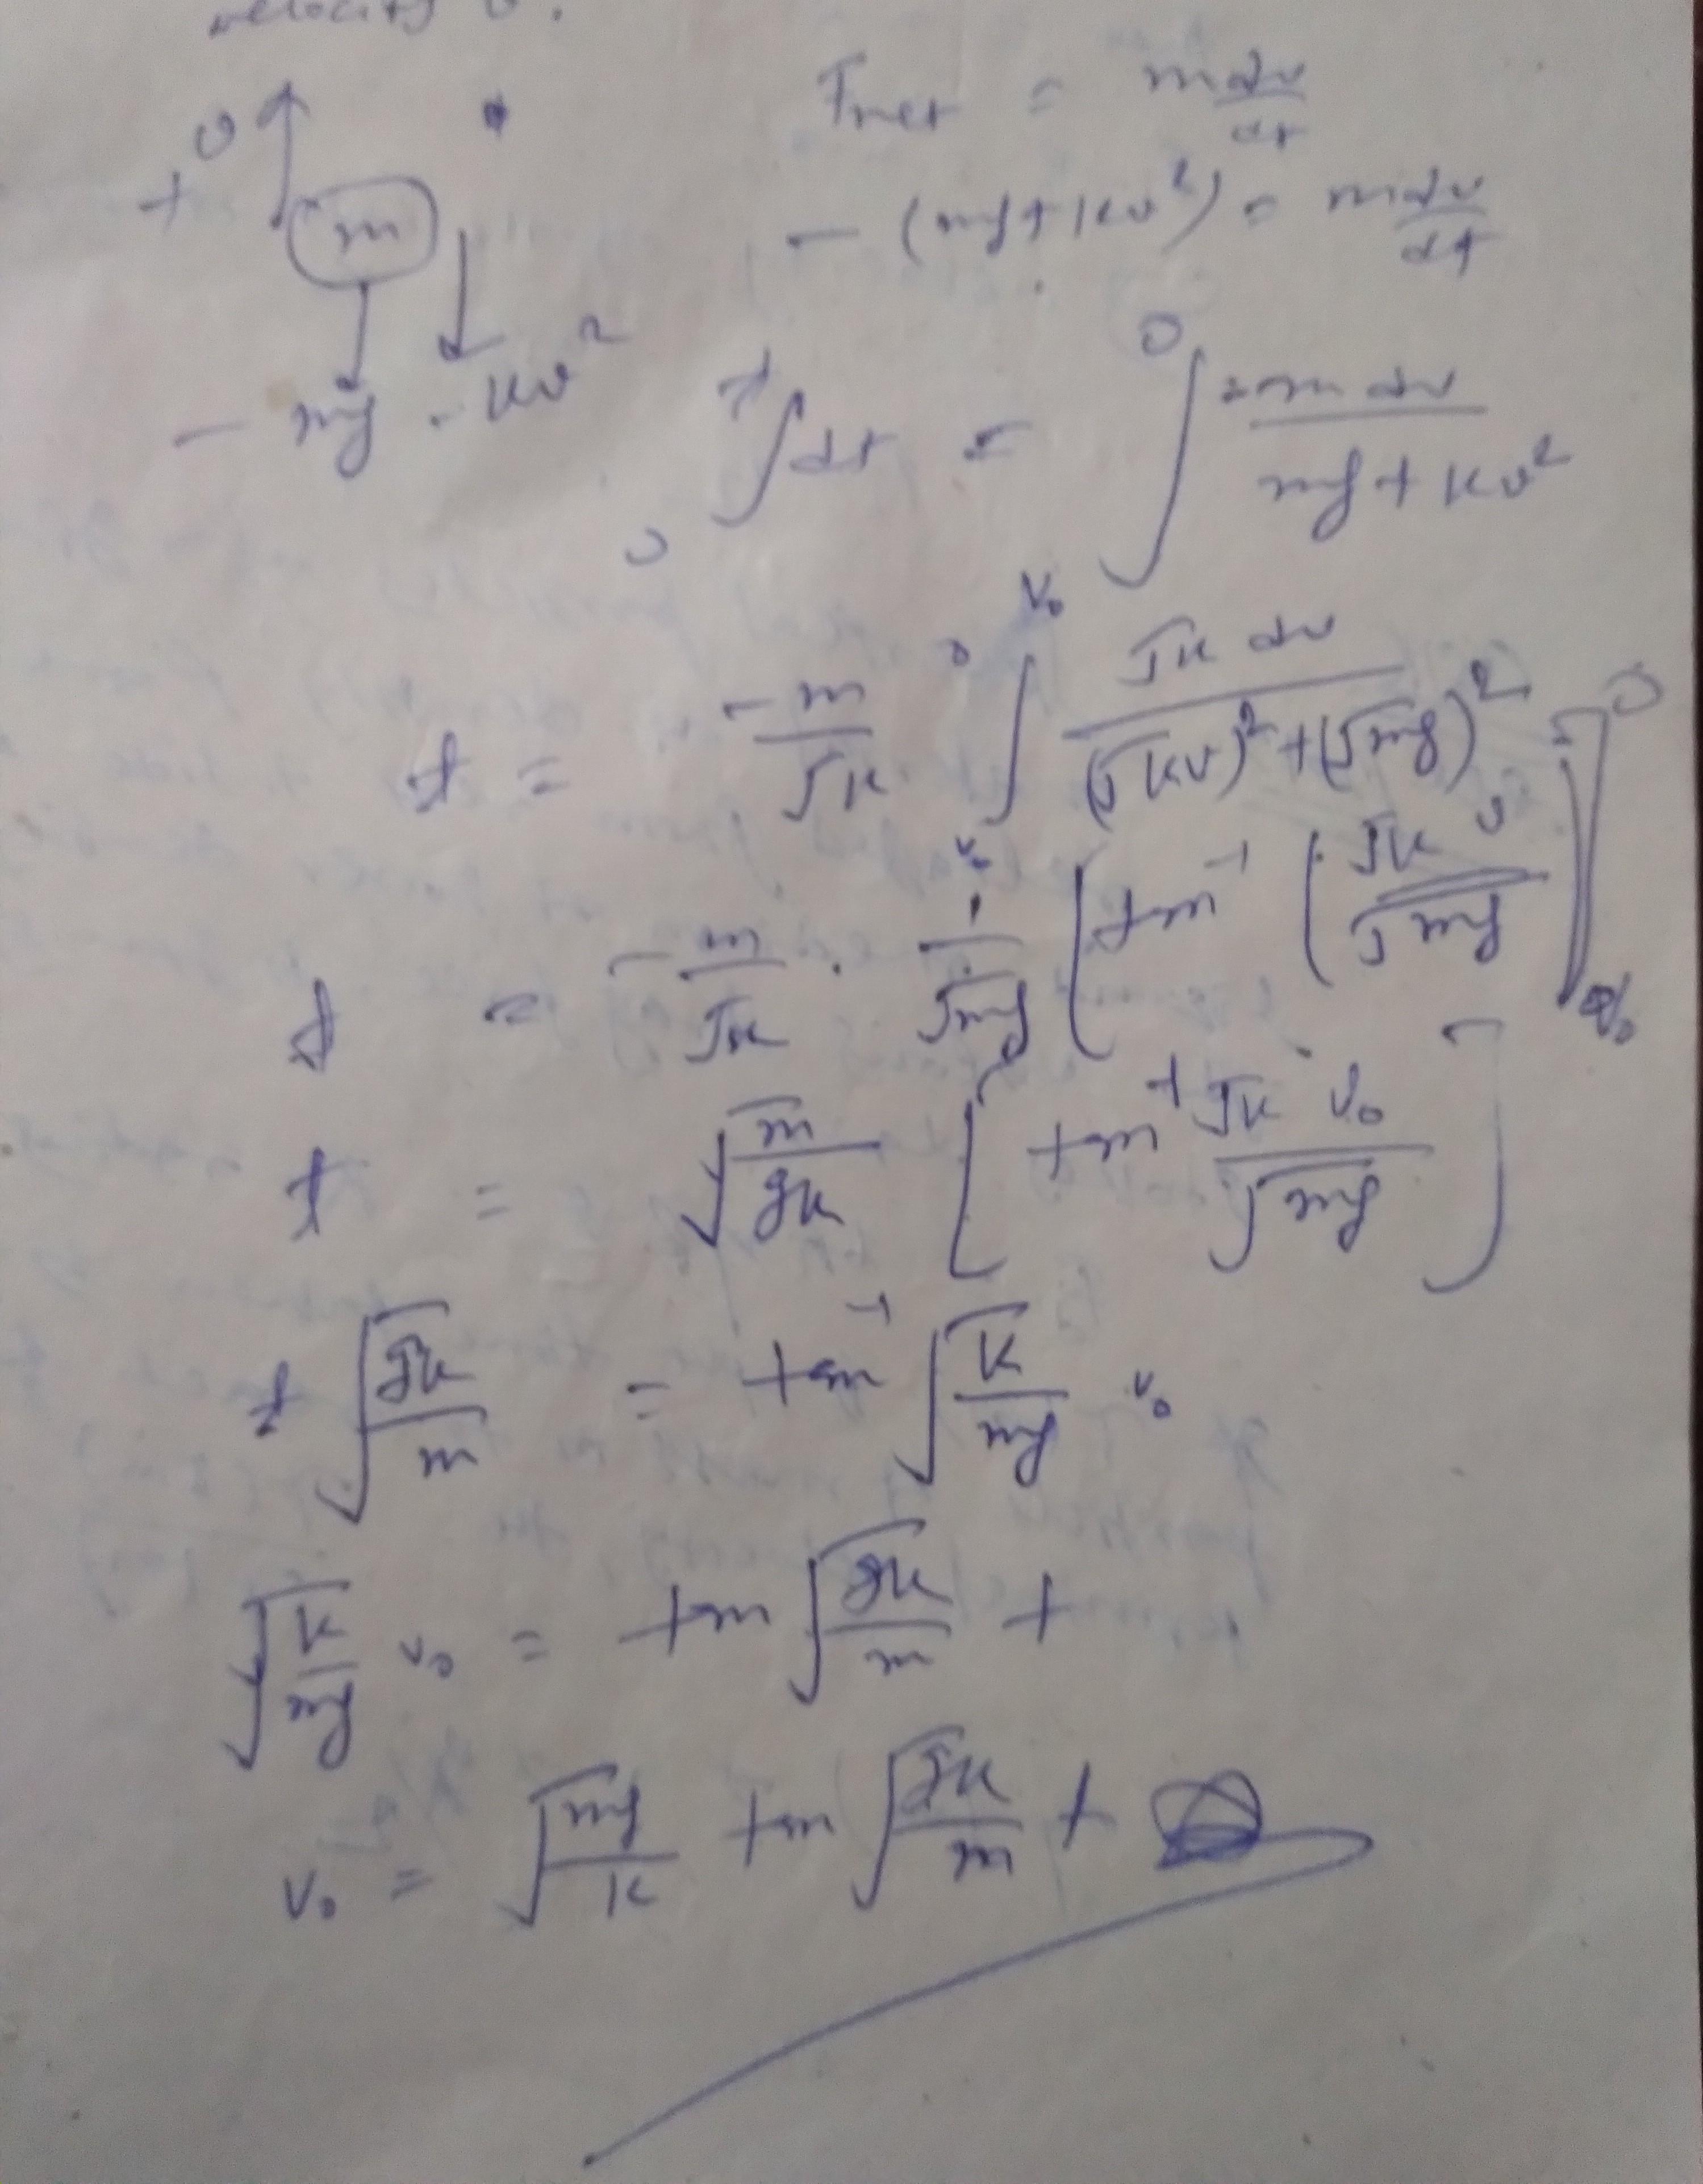 velocity v.
v
+
m
- mg - kv²
Fnet = m dv/dt
- (mg + kv²) = m dv/dt
₀∫ᵗ dt = ∫_{V₀}^{0} -m dv / (mg + kv²)
t = -m/√k ∫_{V₀}^{0} √k dv / ((√kv)² + (√mg)²)
t = -m/√k · 1/√mg [tan⁻¹ (√k v / √mg)]_{V₀}^{0}
t = √(m/gk) [tan⁻¹ √k V₀ / √mg]
t √(gk/m) = tan⁻¹ √(k/mg) V₀
√(k/mg) V₀ = tan √(gk/m) t
V₀ = √(mg/k) tan √(gk/m) t